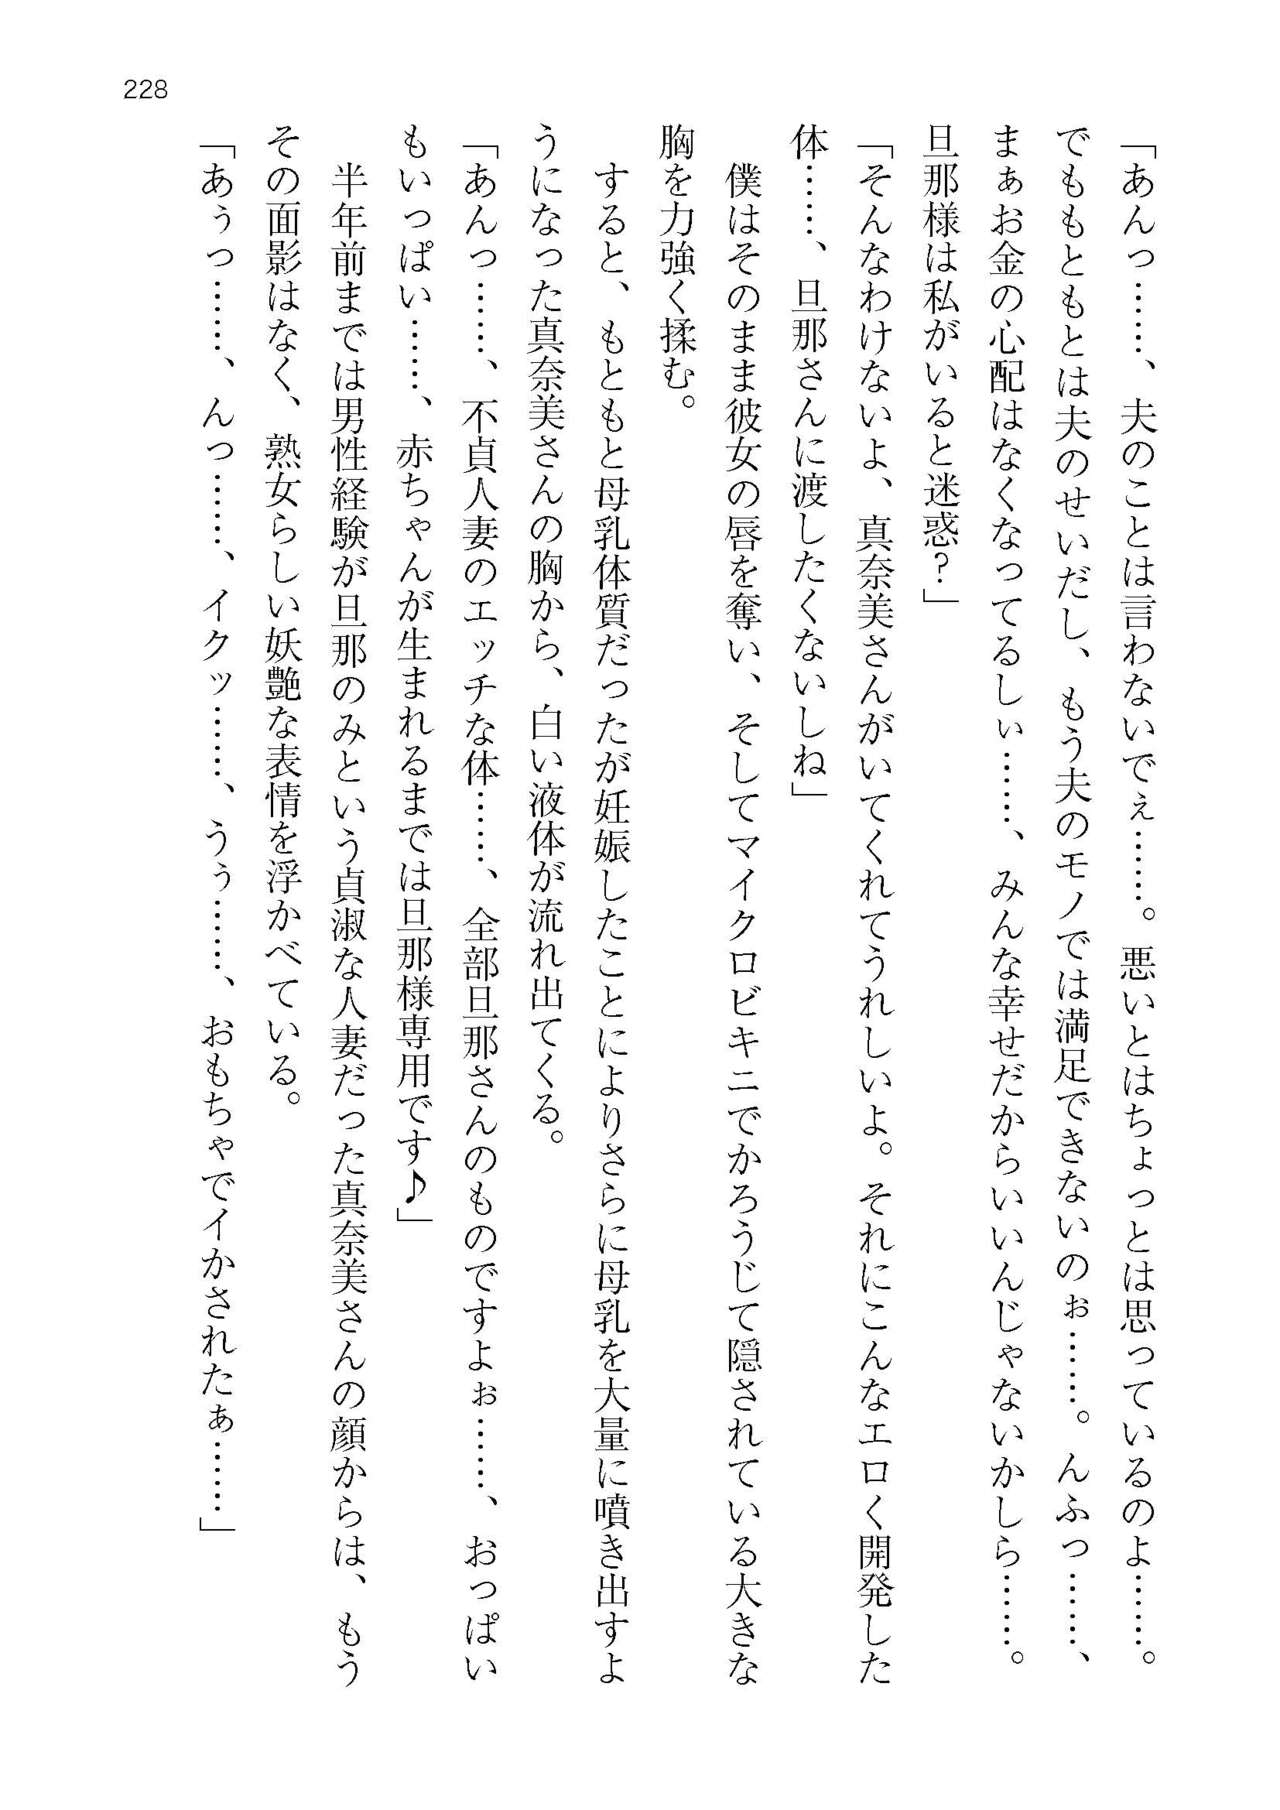 228
「あんっ……、夫のことは言わないでぇ……。悪いとはちょっとは思っているのよ……。
でももともとは夫のせいだし、もう夫のモノでは満足できないのぉ……。んふっ……、
まぁお金の心配はなくなってるしぃ……、みんな幸せだからいいんじゃないかしら……。
旦那様は私がいると迷惑？」
「そんなわけないよ、真奈美さんがいてくれてうれしいよ。それにこんなエロく開発した
体……、旦那さんに渡したくないしね」
僕はそのまま彼女の唇を奪い、そしてマイクロビキニでかろうじて隠されている大きな
胸を力強く揉む。
すると、もともと母乳体質だったが妊娠したことによりさらに母乳を大量に噴き出すよ
うになった真奈美さんの胸から、白い液体が流れ出てくる。
「あんっ……、不貞人妻のエッチな体……、全部旦那さんのものですよぉ……、おっぱい
もいっぱい……、赤ちゃんが生まれるまでは旦那様専用です♪」
半年前までは男性経験が旦那のみという貞淑な人妻だった真奈美さんの顔からは、もう
その面影はなく、熟女らしい妖艶な表情を浮かべている。
「あぅっ……、んっ……、イクッ……、うぅ……、おもちゃでイかされたぁ……」